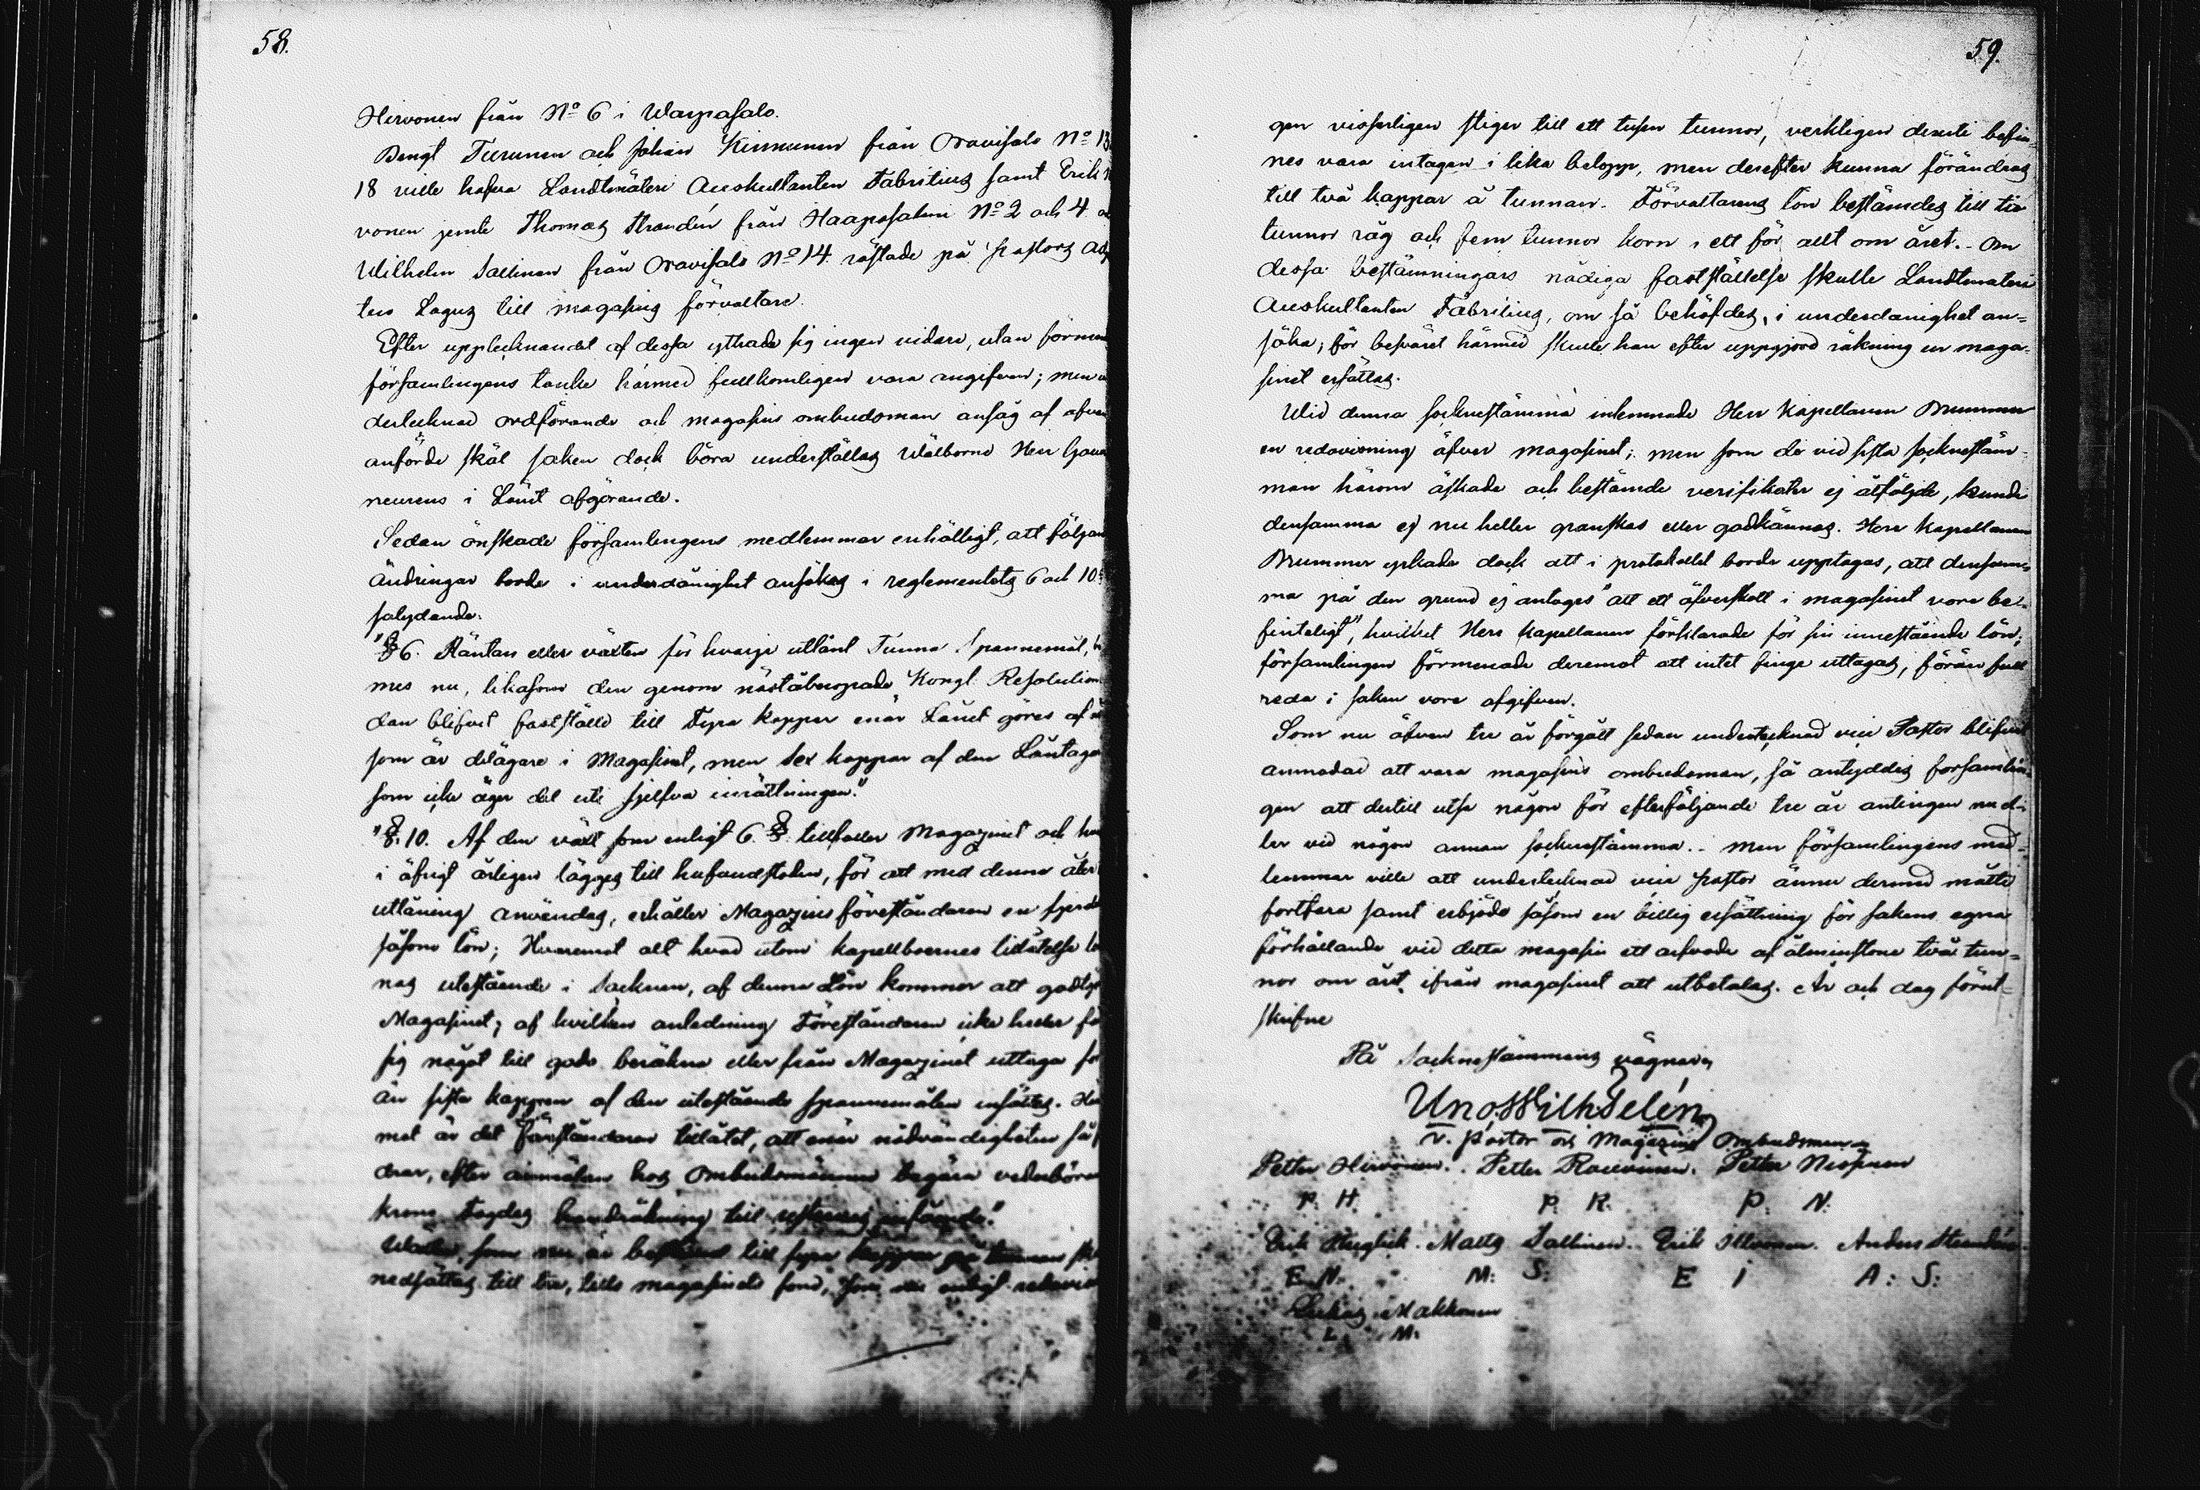 58.
Hirvonen från No 6 i Warpasalo.
Bengt Turunen och Johan Kinnunen från Oravisalo No 13
18 ville hafva Landtmäteri Auskultanten Fabritius samt Erik
vonen jemte Thomas Strandén från Haapasalmi No 2 och 4
Wilhelm Sallinen från Oravisalo No 14 röstade på Pastors
ten Lagus till magasins förvaltare.
Efter upptecknandet af dessa yttrade sig ingen vidare, utan
församlingens tanke härmed fullkomligen vara angifven; men
dertecknad ordförande och magasins ombudsman ansåg af
anförde skäl saken dock böra underställas Wälborne Herr
neurens i Länet afgörande.
Sedan önskade församlingens medlemmar enhälligt, att
ändringar borde i underdånighet ansökas i reglementets 6 och 10
salydande:
"§ 6. Räntan eller växten för hvarje utlånt Tunna Spannemål,
mes nu, likasom den genom näståberopade Kongl. Resolution
dan blifvit fastställd till Fyra kappar enär Lånet göres af
som är delägare i Magasinet, men sex kappar af den
som icke äger del uti sjelfva inrättningen."
"§. 10. Af den växt som enligt 6. §. tillfaller Magazinet och
i öfrigt årligen lägges till hufvudstolen, för att med denna åter
utlåning användas, erhåller Magazins föreståndaren en
såsom lön; Hvaremot allt hvad utom kapellboernes tillåtelse
nas utestående i Socknen, af denna Lön kommer att
Magasinet; af hvilken anledning Föreståndaren icke heller
sig något till godo beräkna eller från Magazinet uttaga
än sista kappen af den utestående spannemålen
mot är det Föreståndaren tillåtet, att enär nödvändigheten
drar, efter anmälan hos Ombudsmännen begära
krono Fogdes handräkning till
som nu är till fyra kappar på tunnan
nedsättas till tre, tills magasinets fond, som nu enligt
59.
gen visserligen stiger till ett tusen tunnor, verkligen deruti befin=
nes vara intagen i lika belopp, men derefter kunna förändras
till två kappar å tunnan. Förvaltarens lön bestämdes till tio
tunnor råg och fem tunnor korn i ett för allt om året. - Om
dessa bestämningars nådiga fastställelse skulle Landtmäteri
Auskultanten Fabritius, om så behöfdes, i underdånighet an=
söka; för besväret härmed skulle han efter uppgjord räkning ur maga=
sinet ersättas.
Wid denna sockenstämma inlemnade Herr Kapellanen Brummer
en redovisning öfver magasinet; men som de vid sista sockenstäm=
man härom äskade och bestämde verifikater ej åtföljde, kunde
densamma ej nu heller granskas eller godkännas. Herr Kapellanen
Brummer yrkade dock att i protokollet borde upptagas, att densam=
ma på den grund ej antages "att ett öfverskott i magasinet vore be=
finteligt", hvilket Herr Kapellanen förklarade för sin innestående lön;
församlingen förmenade deremot att intet finge uttagas, förän full
reda i saken vore afgifven.
Som nu äfven tre år förgått sedan undertecknad vice Pastor blifvit
anmodad att vara magasins ombudsman, så antyddes församlin=
gen att dertill utse någon för efterföljande tre år antingen nu el=
ler vid någon annan sockenstämma. - Men församlingens med=
lemmar ville att undertecknad vice pastor ännu dermed måtte
fortfara samt erbjödo såsom en billig ersättning för sakens egna
förhållande vid detta magasin ett arfvode af åtminstone två tun=
nor om året ifrån magasinet att utbetalas. År och dag förut=
skrifne
På Sockenstämmans vägnar,
Uno Wilh. Selén
v. Pastor och Magazins Ombudsman
Petter Hirvonen. Petter Rouvinen. Petter Nissinen
P. H. P. R. P. N.
Erik Matts Sallinen. Erik Anders Strandén.
E. N. M: S: E I A: S:
Lukas Makkonen
L. M.